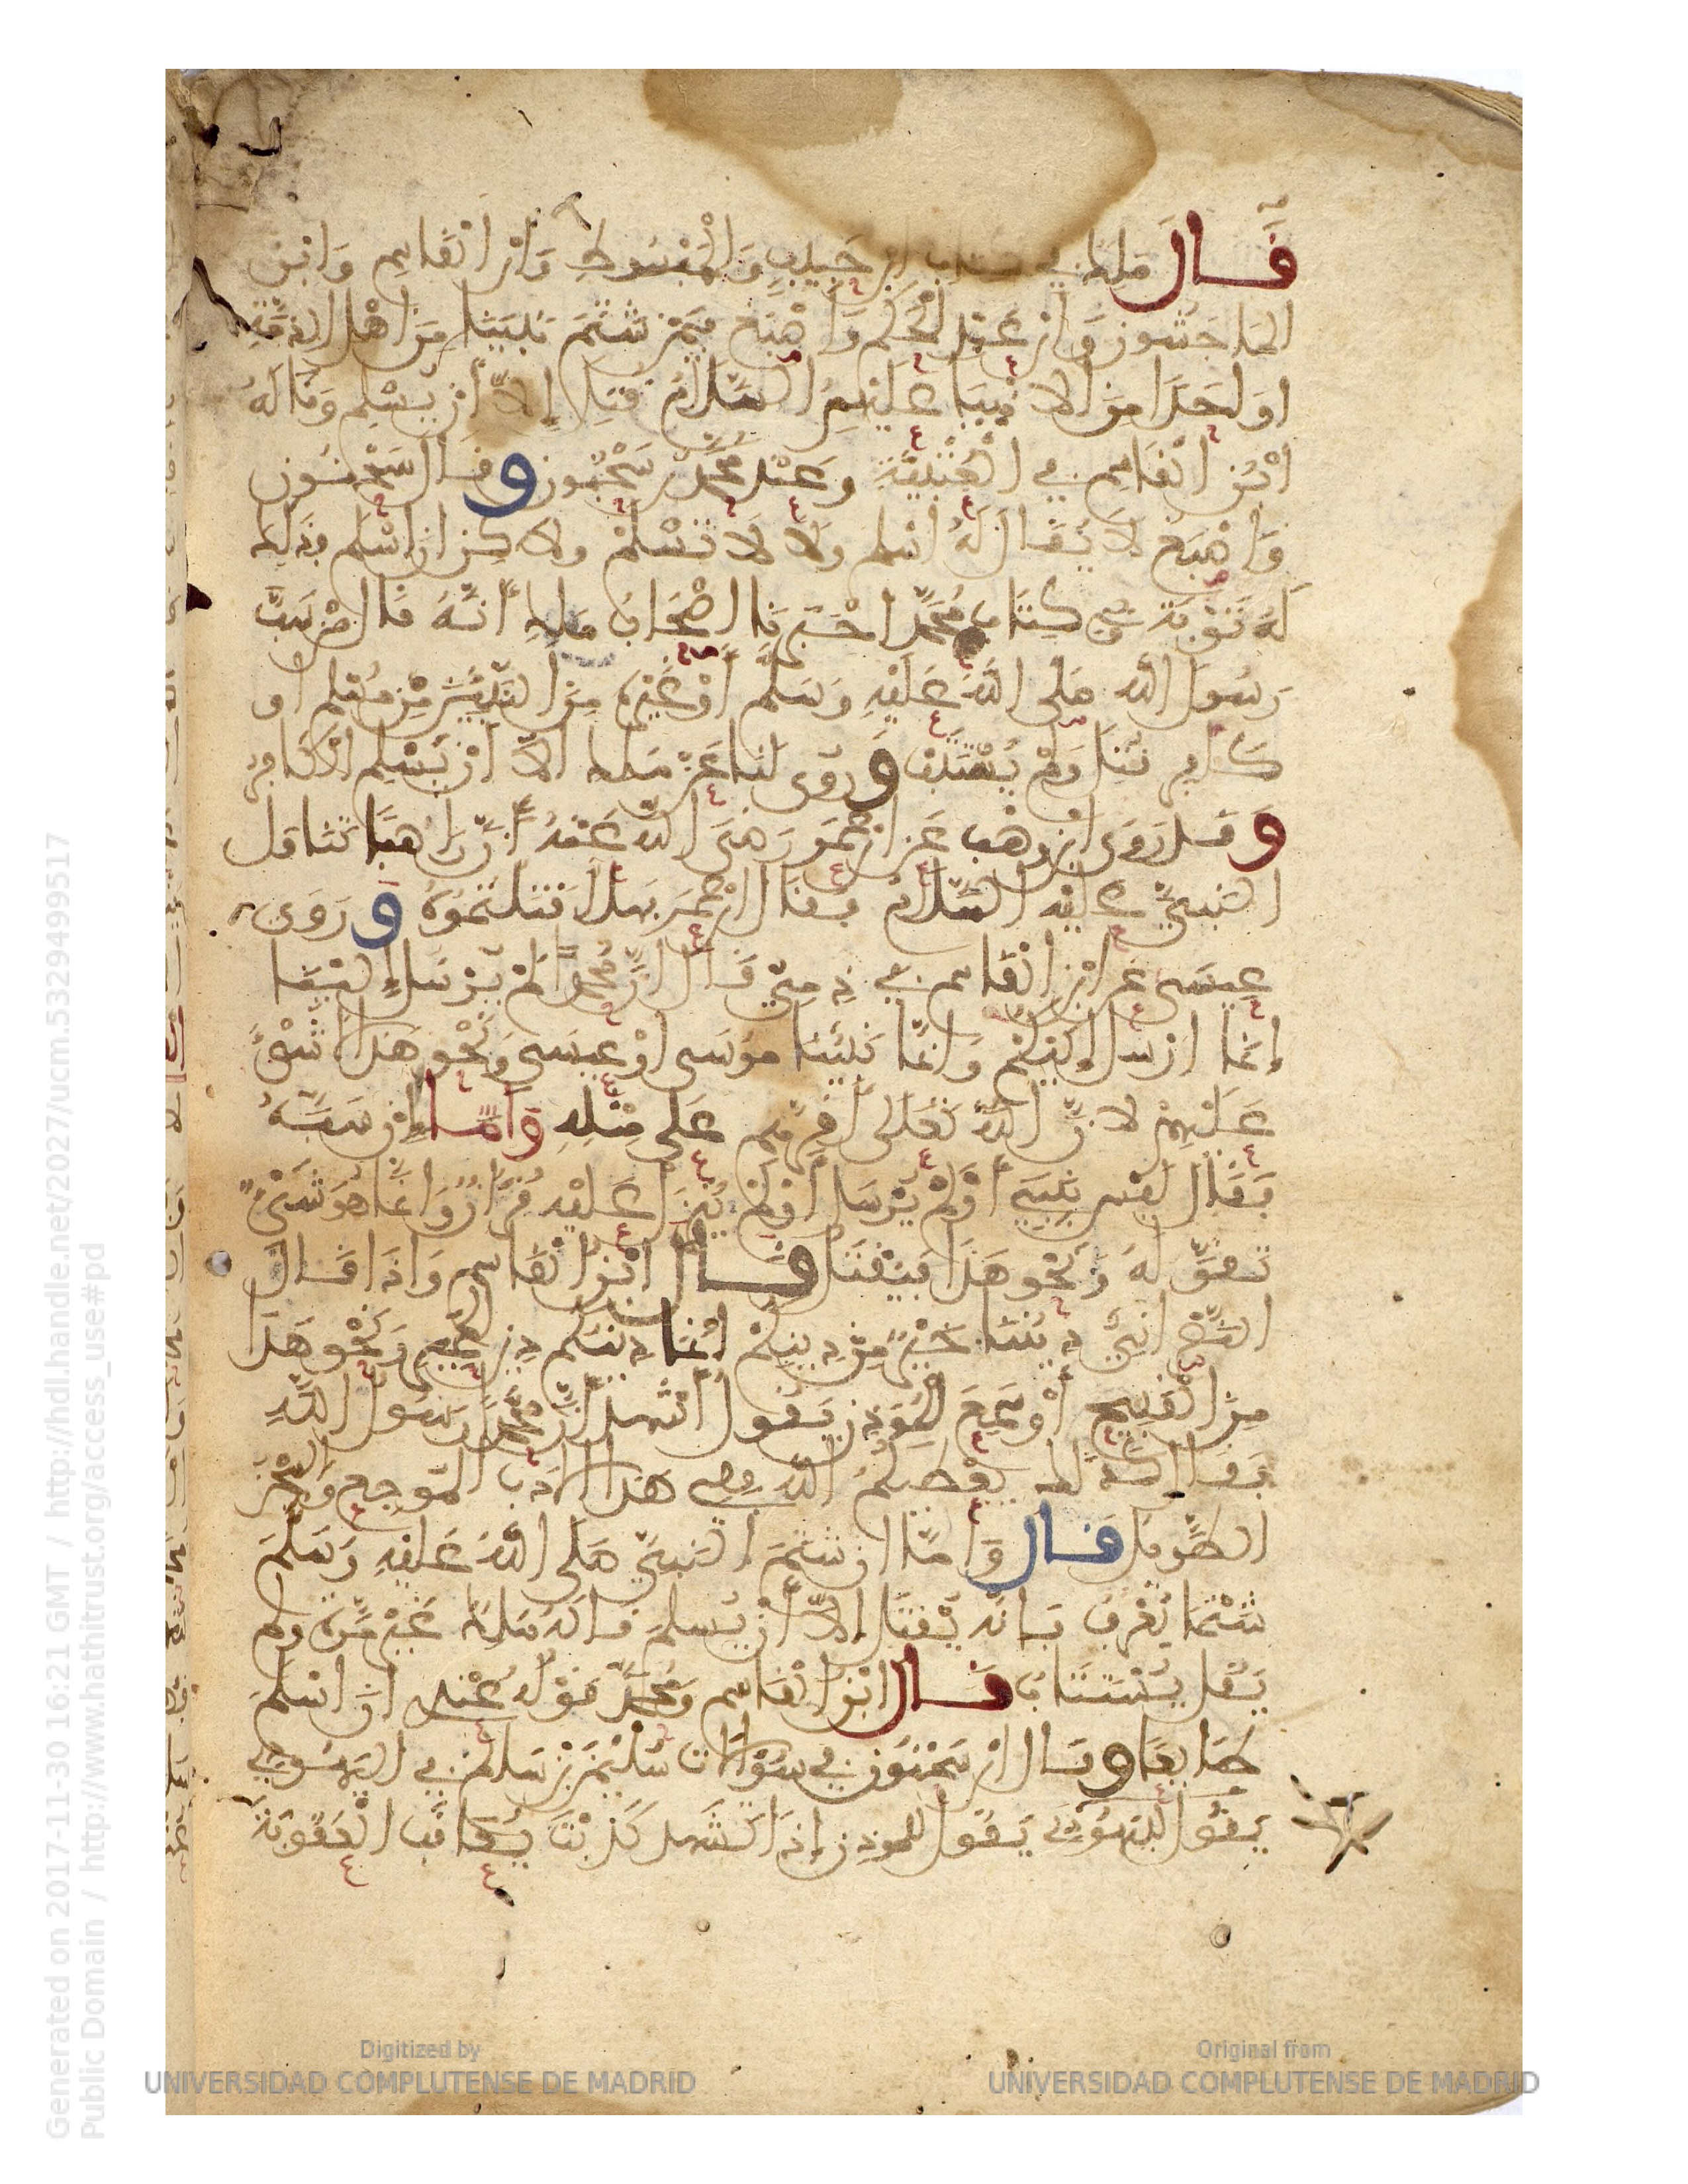 قَال مَلِك في كتاب ابن حَبيبٍ وَالْمَبْسُوطِ وَابْن الْقَاسِم وَابْن
الما جَشُون وَابْن عَبْد الْحَكَم وَأصْبَغ فيمَن شَتَمَ نَبِيَّنَا مِنَ اهْل الذِّمَّةِ
اوَ احَدًا مِنَ الانْبِيَا عَلَيْهِم السَّلَامُ قُتِلَ إلاّ أنْ يُسْلِم وَقَالَهُ
ابْن الْقَاسِم في الْعُتْبِيّةِ وعِنْد مُحمّد وسَحْنُون وقَال سَحْنُون
وَاصْبَغ لَا يُقَال لَهُ اسْلِم ولَا لَا تُسْلِمْ ولاكِن ان اسْلَم فذَلِك
لَهُ تَوْبَة في كِتَاب مُحَمَّد اخْبَرَنا اصْحَابُ مَلِك أنّهُ قَال مَنْ سَبَّ
رَسُولَ اللّه صَلى اللّهُ عَلَيْهِ وَسَلّم أوْ غَيْرَهُ مِنَ النَّبِيئِينَ مِنْ مُسْلِم او
كَافِر قُتِل وَلَمْ يُسْتَتَبْ وَرُوِى لَنَا عَنْ مَلِك الاّ أنْ يُسْلِم الْكَافِر
وَقَد رَوَى ابْن وَهْب عَن ابْن عُمَر رَضِيَ اللّه عَنْهُ أنّ رَاهِبًا تَنَاوَل
النّبِيَّ عَلَيْه السَّلَامُ فقَال ابْن عُمَر فهلّا قتَلْتُمُوهُ وَرَوَى
عِيسَى عَن ابْن الْقَاسِم في ذِمِيٍّ قَال انَّ مُحمّدًا لَمْ يُرْسَل إلَيْنَا
إنَّمَا ارْسِلَ إلَيْكُمْ وَانَّمَا نَبِيُّنَا مُوسَى اوْ عِيسَى وَنَحْو هَذَا لا شَيْءَ
عَلَيْهِمْ لانَّ اللّه تَعَلَى أقَرَّهُم عَلى مِثْلِه وَأمَّا إنْ سَبَّهُ
فَقَال لَيْس بنَبِيٍّ أوْ لَمْ يُرْسَل أوْ لَمْ يُنزَل عَلَيْه قُرْآن وَانَّمَا هُوَ شَيْءٌ
تقَوَّلَهُ وَنَحْو هَذَا فَيُقْتَل قَال ابْن الْقَاسِم وَاذَا قَال
النَّصْرَانِيّ دِيننَا خَيْرٌ مِّنْ دِينِكُمْ انَّمَا دِينكُم دِين الْحَمِيرِ وَنَحْو هَذَا
مِنَ الْقَبِيح أوْ سَمِعَ الْمُوَذِّن يَقُول أشْهَد أنَّ مُحَمَّدًا رَسُول اللَّهِ
فقَال كَذَلِك يُعْطِيكُمُ اللّه ففِي هَذَا الْادَبُ الْمُوجِع وَالسِّجْن
الطَّوِيل قَال وَامَّا ان شَتَمَ النّبِيَّ صَلى اللّهُ عَلَيْهِ وَسَلَّمَ
شَتْمًا يُعْرَفُ فَانَّه يُقْتَل إلاّ أنْ يُسلِمَ قالَهُ مَلِكٌ غَيْرَ مَرَّة وَلَم
يَقُل يُسْتَتَابُ قَال ابْن الْقَاسِم وَمَحْمَل قَوْلُهُ عِنْدِي انْ اسْلَمَ
طَايعًا وقَال ابْن سَحْنُون في سُؤَالَات سُلَيْمَن بْن سَالِم في الْيَهُودِيِّ
يَقُول لِلْمُوَذِّن إذَا تَشَهَّد كَذَبْتَ يُعَاقَبُ الْعُقُوبَةَ
Generated on 2017-11-30 16:21 GMT / http://hdl.handle.net/2027/ucm.5329499517
Public Domain / http://www.hathitrust.org/access_use#pd
Digitized by
UNIVERSIDAD COMPLUTENSE DE MADRID
Original from
UNIVERSIDAD COMPLUTENSE DE MADRID